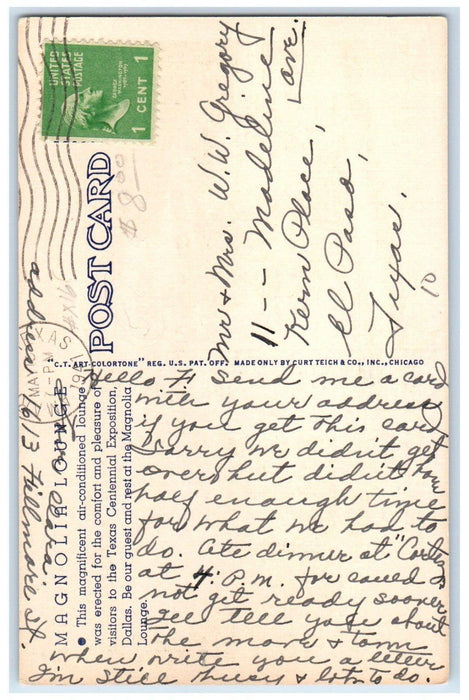 UNITED
STATES
POSTAGE
GEORGE
WASHINGTON
1789-1797
1 CENT 1
$ 8.00
POST CARD
Mr + Mrs. W. W. Gregory
11 -- Madeline
ave.
Kern Place,
El Paso,
Texas.
10
"C.T. ART-COLORTONE" REG. U.S. PAT. OFF. MADE ONLY BY CURT TEICH & CO., INC., CHICAGO
MAGNOLIA LOUNGE
● This magnificent air-conditioned lounge
was erected for the comfort and pleasure of
visitors to the Texas Centennial Exposition,
Dallas. Be our guest and rest at the Magnolia
Lounge.
Hello. Send me a card
with your address
if you get this card
Sorry we didn't get
over but didn't have
half enough time
for what we had to
do. Ate dinner at
at 4. P.M. for could
not get ready sooner
tell you about
the more + town
when write you a letter
I'm still busy + lots to do.
address 1613 Fillmore St.